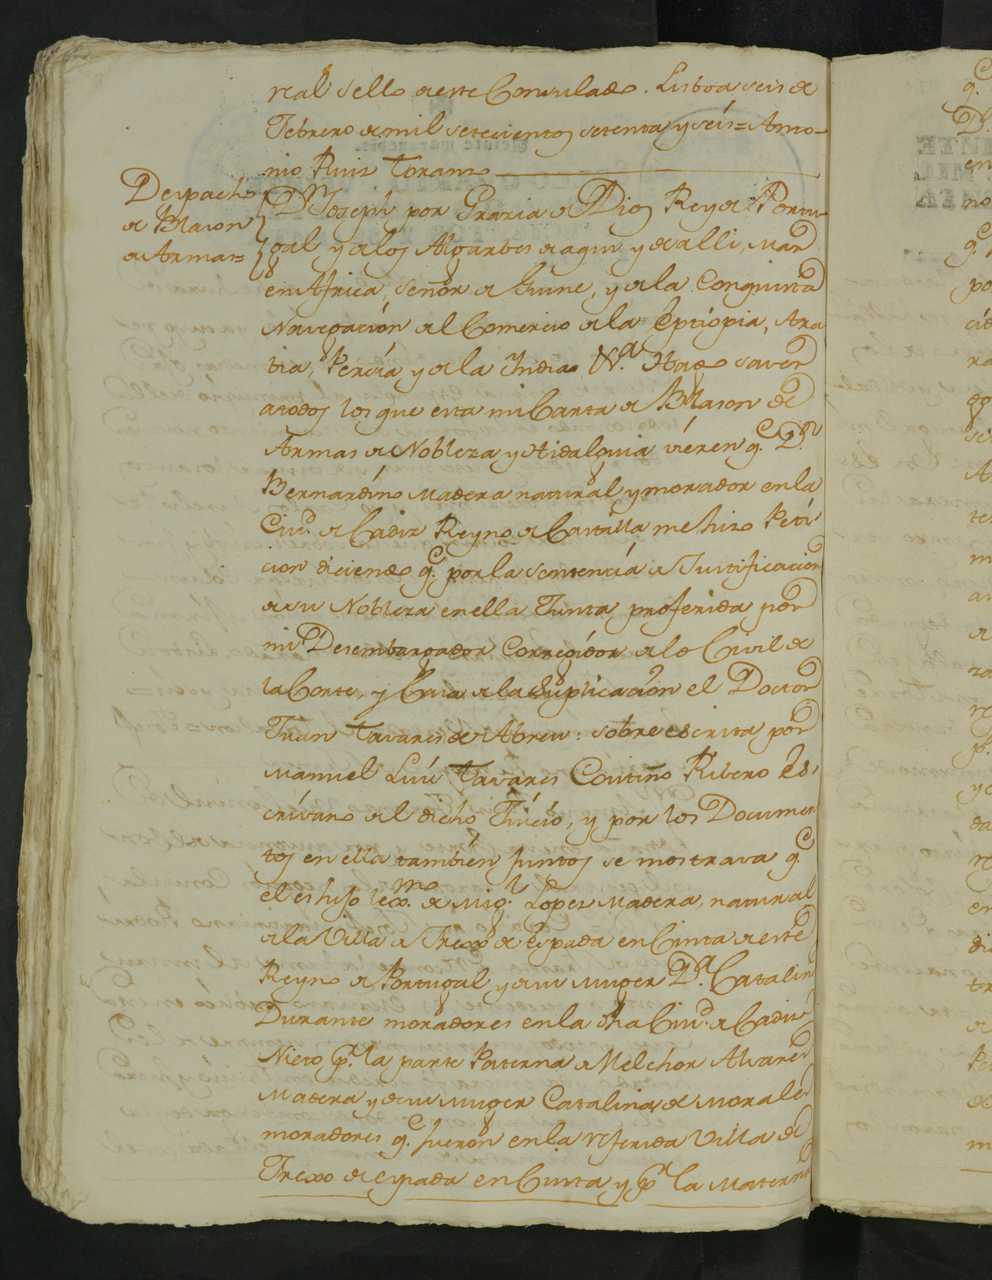 real sello de este Consulado. Lisboa seis de
Febrero de mil setecientos setenta y seis = Anto-
nio Ruis Torano
Despacho
de Blason
de Armas =
Dn Joseph por Gracia de Dios Rey de Portu-
gal y de los Algarbes de aqui y de alli, Mar
en Africa, Señor de Guine, y de la Conquista
Navegacion del Comercio de la Eptiopia, Ara
bia, Persia y de la India Va. Hago saver
a todos los que esta mi Carta de Blason de
Armas de Nobleza y Hidalguia vieren q.e D.n
Bernardino Madera natural y morador en la
Ciud. de Cadiz Reyno de Castilla me hizo Peti
cion diciendo q.e por la sentencia de Justificacion
de su Nobleza en ella Junta proferida por
mi Desembargador Corregidor de lo Civil de
la Corte, y Casa de la Suplicacion el Doctor
Juan Tavares de Abreu: sobreescrita por
Manuel Luis Tavares Coutiño Ribero Es-
crivano del dicho Juicio, y por los Documen
tos en ella tambien Juntos se mostrava q.e
el es hijo lexmo. de Migl. Lopez Madera, natural
de la Villa de Frexo de Espada en Cinta de este
Reyno de Portugal, y de su muger D.a Catalin
Durante moradores en la dha Ciud. de Cadiz
Nieto p.r la parte Paterna de Melchor Alvare
Madera y de su muger Catalina de Morales
moradores q.e fueron en la referida Villa de
Frexo de espada en Cinta y p.r la Matern